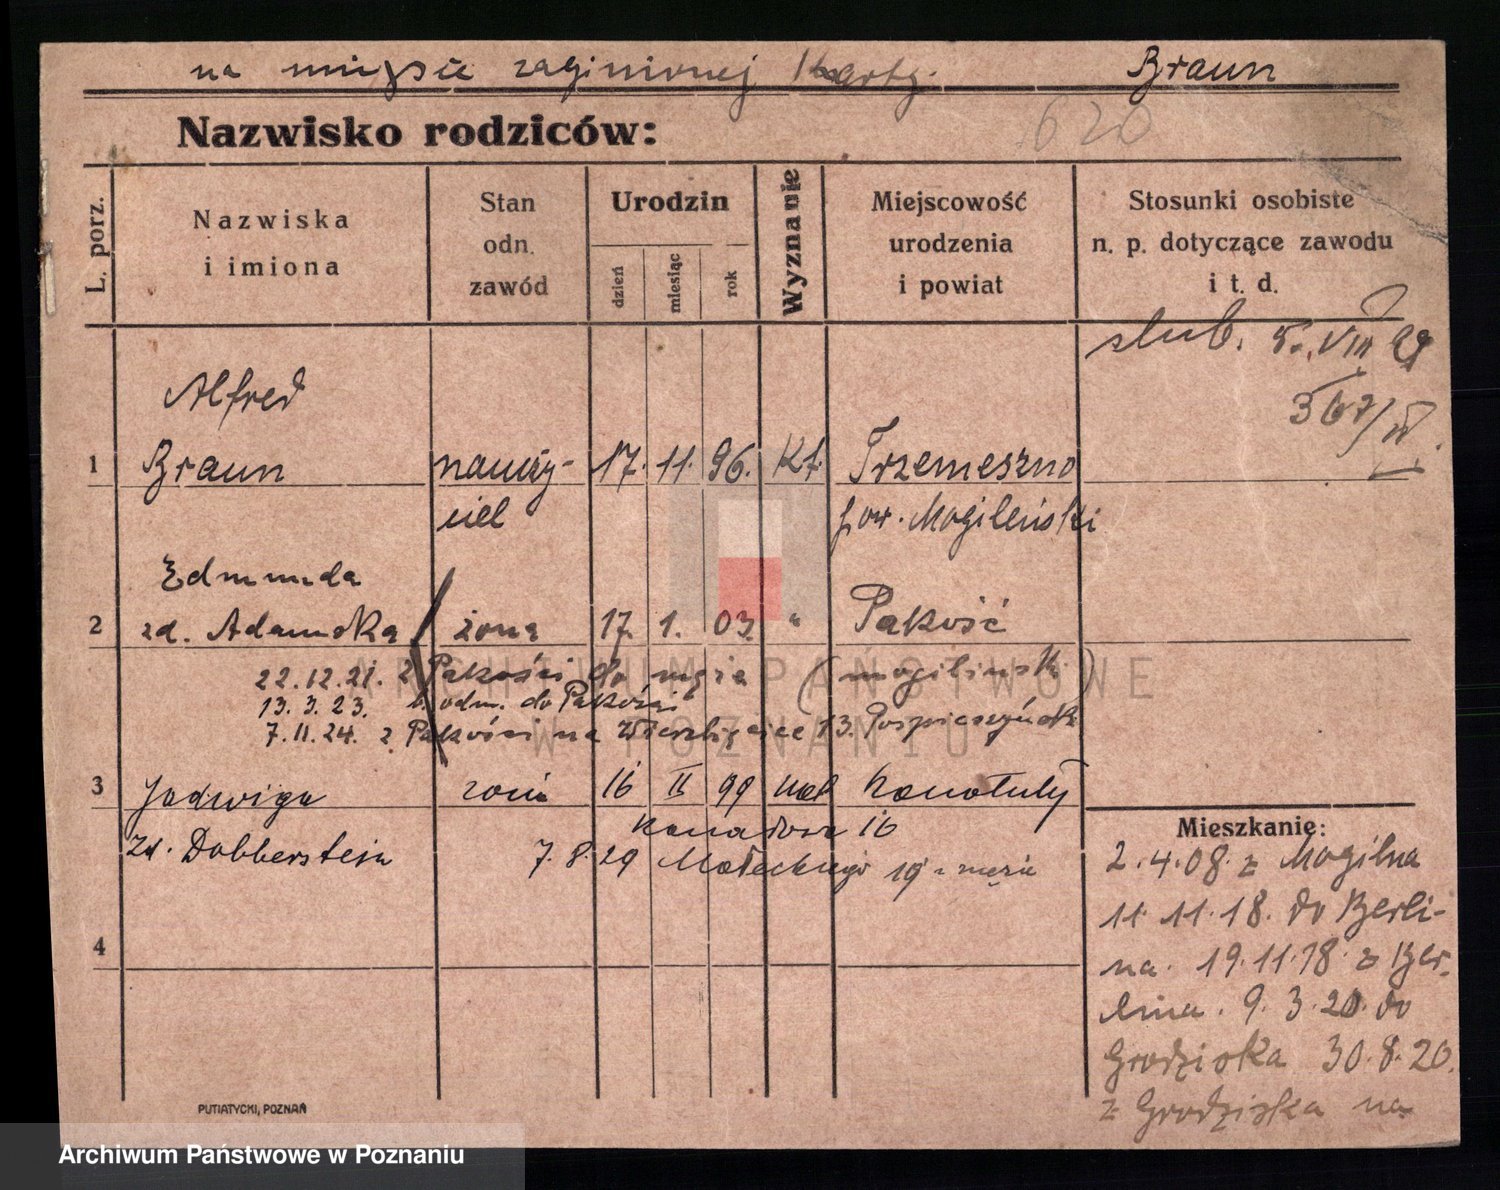 na miejsce zaginionej Karty. Braun
620
Nazwisko rodziców:
L. porz.
Nazwiska
i imiona
Stan
odn.
zawód
Urodzin
dzień
miesiąc
rok
Wyznanie
Miejscowość
urodzenia
i powiat
Stosunki osobiste
n. p. dotyczące zawodu
i t. d.
ślub. 5. VIII 29
367/IV.
Alfred
1 Braun nauczy- 17. 11. 96. Kt. Trzemeszno
ciel pow. Mogileński
Edmunda
2 zd. Adamska żona 17. 1. 03. " Pakość
22.12.21. z Pakości do męża (mogileński)
13. 3. 23. odm. do Pakości
7.11.24. z Pakości na Wierzbięcice 13. Pospieszyńsk
3 Jadwiga żona 16 II 99 kat
zd. Dobberstein
16
7. 8. 29 Małeckiego 19 męża
4
Mieszkanie:
2. 4. 08. z Mogilna
11. 11. 18. do Berli-
na. 19. 11. 18 z Ber-
lina. 9. 3. 20. do
Grodziska 30. 8. 20.
z Grodziska na
PUTIATYCKI, POZNAŃ
ARCHIWUM PAŃSTWOWE
W POZNANIU
Archiwum Państwowe w Poznaniu